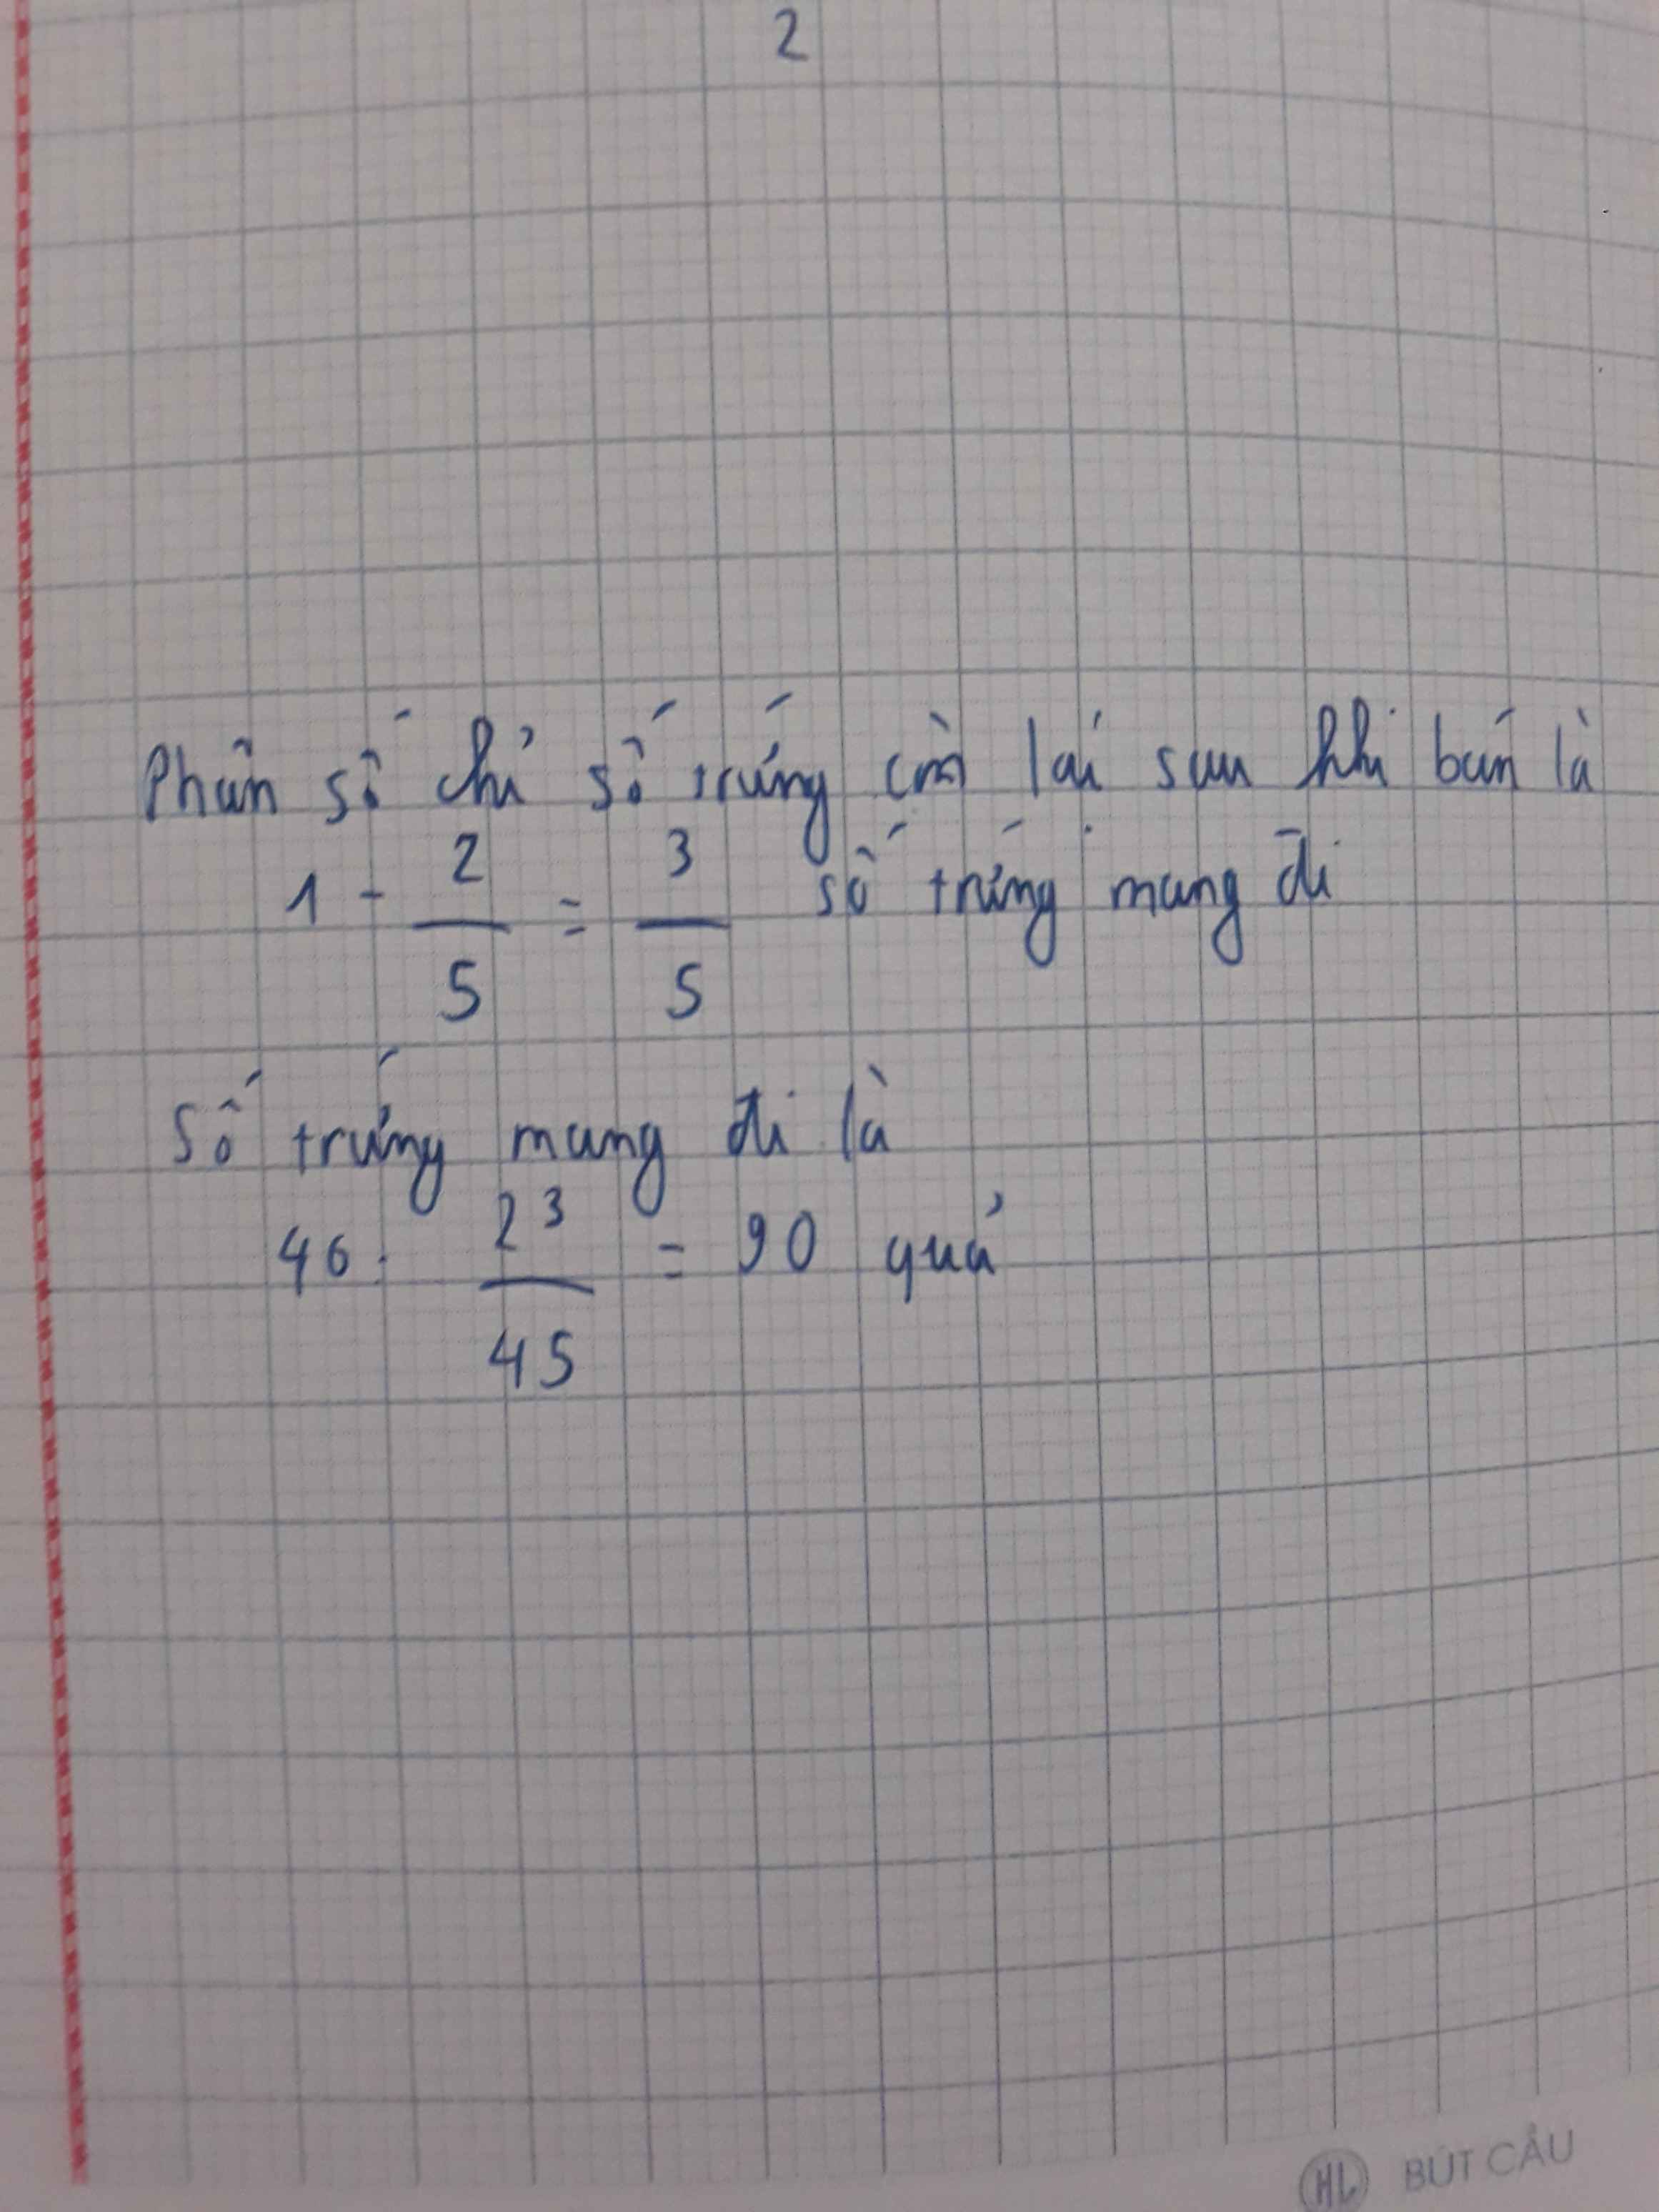 2
Phân số chỉ số trứng còn lại sau khi bán là
1 - 2/5 = 3/5 số trứng mang đi
Số trứng mang đi là
46 : 23/45 = 90 quả
HL BÚT CẦU